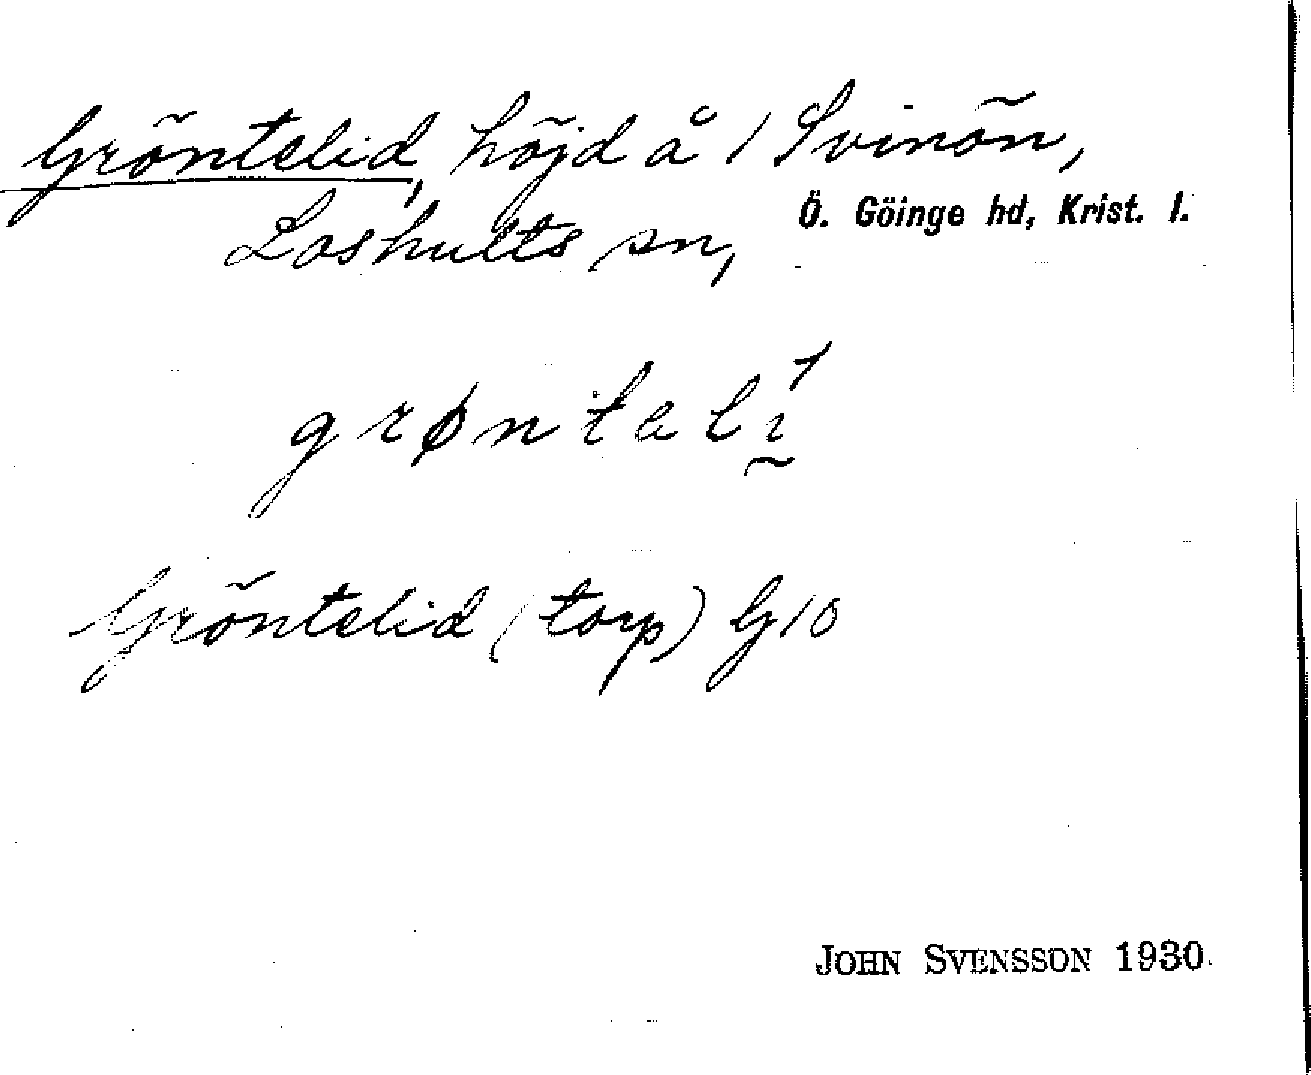 Gröntelid, höjd å 1 Svinön,
Loshults sn, Ö. Göinge hd, Krist. l.
grøntalı́
Gröntelid (torp) G10
JOHN SVENSSON 1930